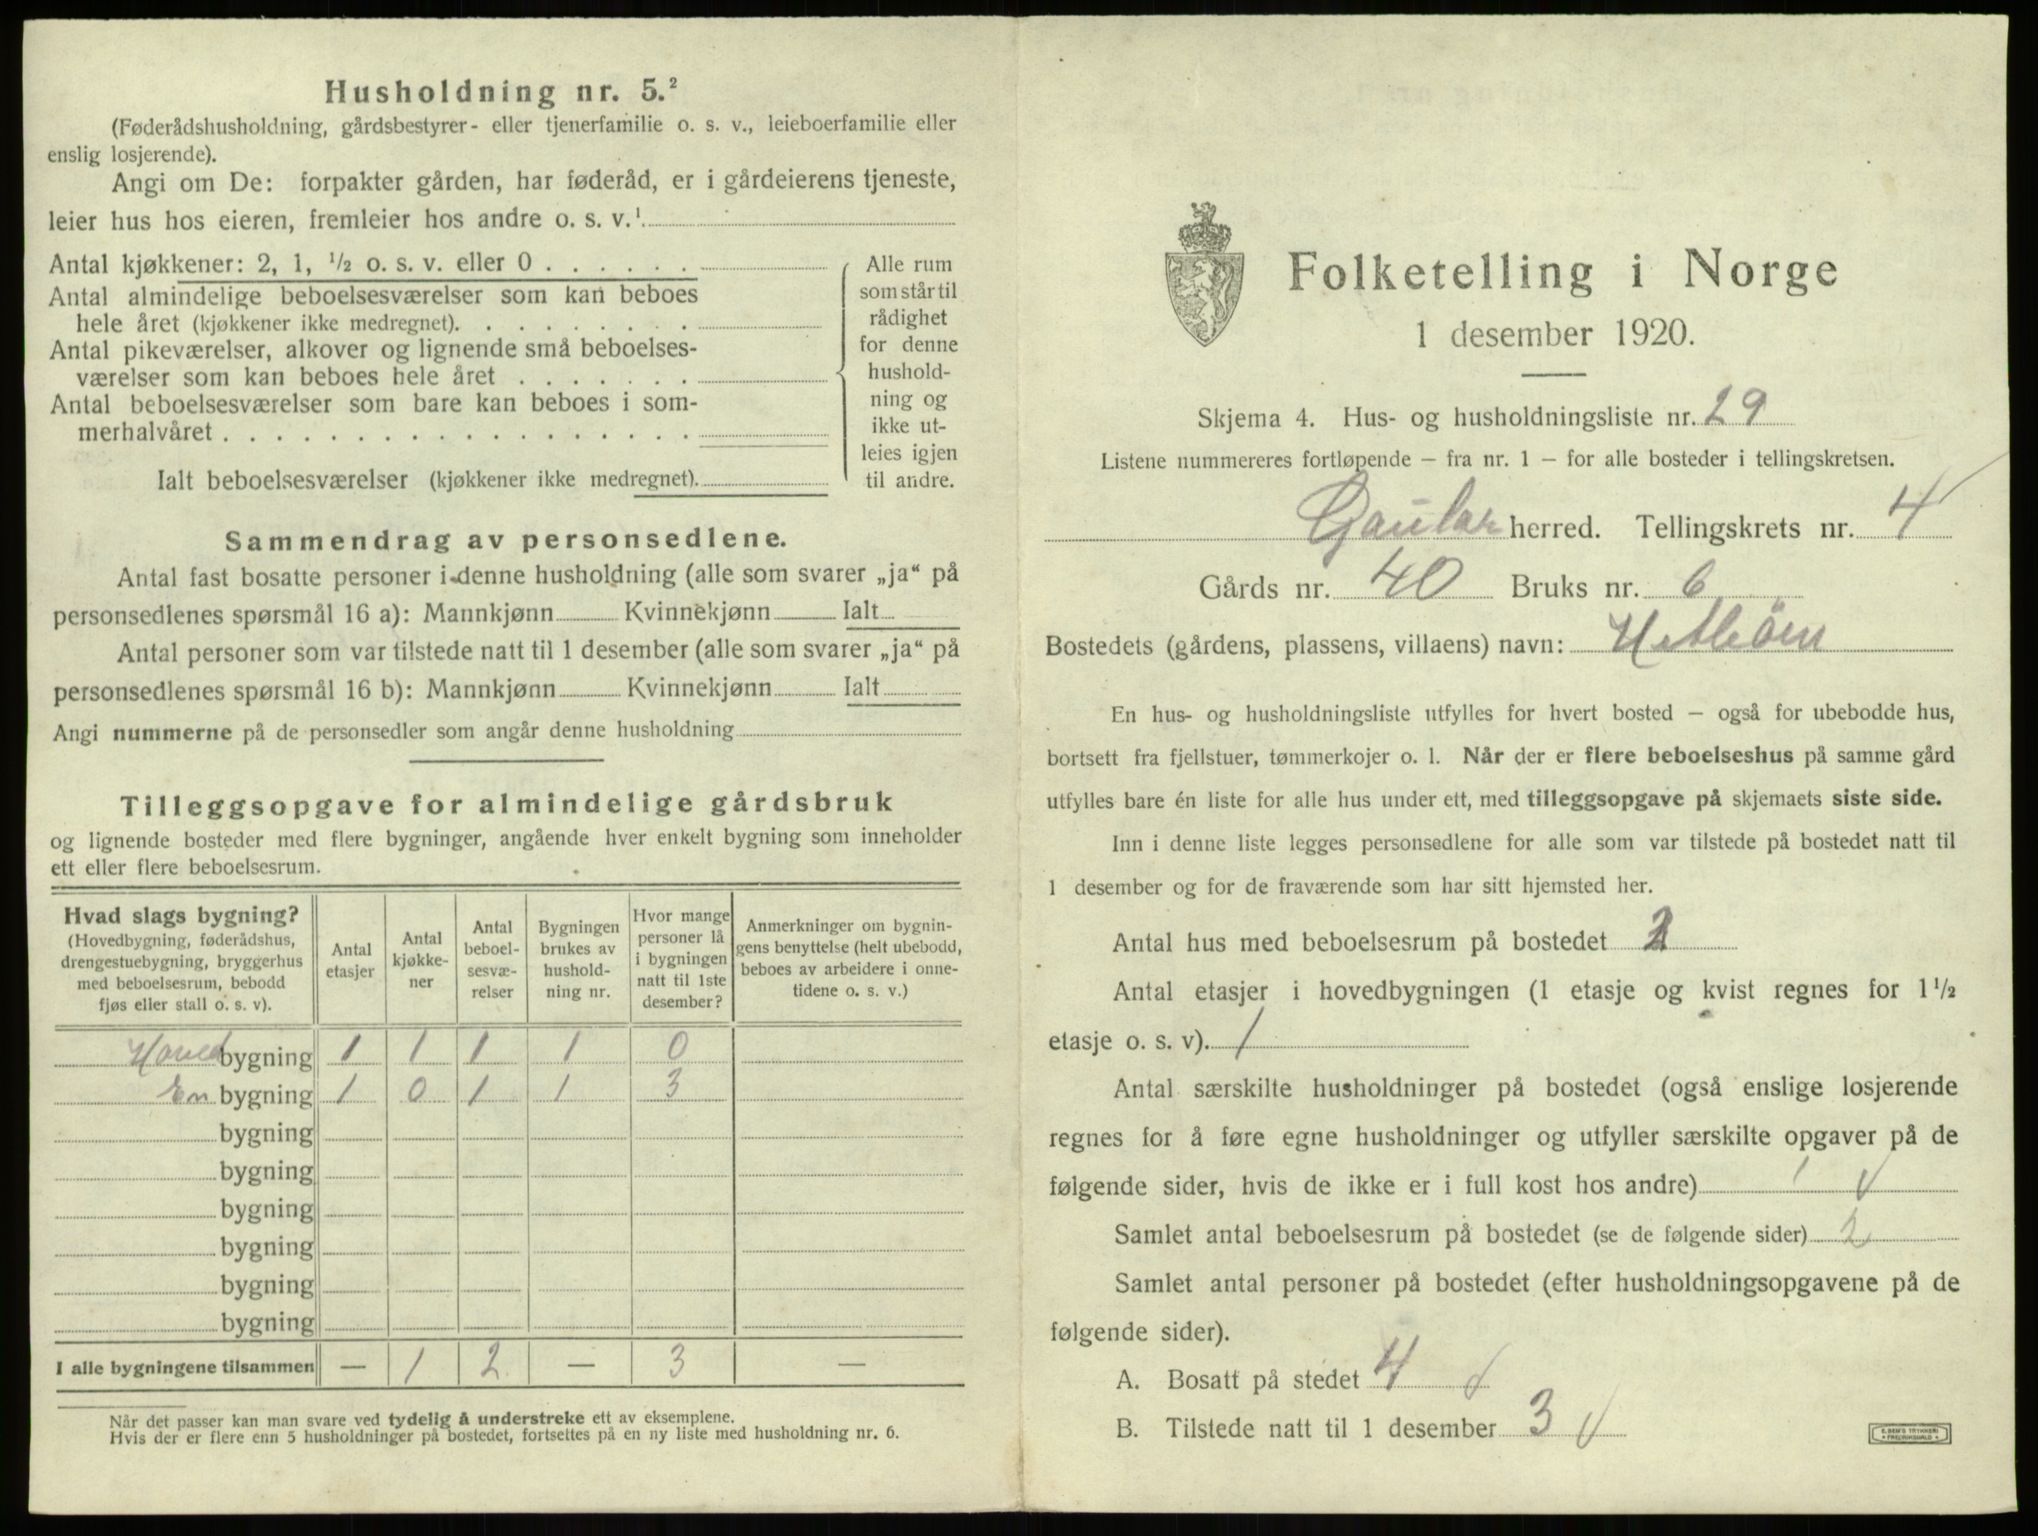 Husholdning nr. 5.²
(Føderådshusholdning, gårdsbestyrer- eller tjenerfamilie o. s. v., leieboerfamilie eller
enslig losjerende).
Angi om De: forpakter gården, har føderåd, er i gårdeierens tjeneste,
leier hus hos eieren, fremleier hos andre o. s. v.¹
Antal kjøkkener: 2, 1, ½ o. s. v. eller 0 . . . . . .
Antal almindelige beboelsesværelser som kan beboes
hele året (kjøkkener ikke medregnet). . . . . . . . .
Antal pikeværelser, alkover og lignende små beboelses-
værelser som kan beboes hele året . . . . . . .
Antal beboelsesværelser som bare kan beboes i som-
merhalvåret . . . . . . . . . . . . . . . . . .
Ialt beboelsesværelser (kjøkkener ikke medregnet).
Alle rum
som står til
rådighet
for denne
hushold-
ning og
ikke ut-
leies igjen
til andre.
Sammendrag av personsedlene.
Antal fast bosatte personer i denne husholdning (alle som svarer „ja“ på
personsedlenes spørsmål 16 a): Mannkjønn Kvinnekjønn Ialt
Antal personer som var tilstede natt til 1 desember (alle som svarer „ja“ på
personsedlenes spørsmål 16 b): Mannkjønn Kvinnekjønn Ialt
Angi nummerne på de personsedler som angår denne husholdning
Tilleggsopgave for almindelige gårdsbruk
og lignende bosteder med flere bygninger, angående hver enkelt bygning som inneholder
ett eller flere beboelsesrum.
Hvad slags bygning?
(Hovedbygning, føderådshus,
drengestuebygning, bryggerhus
med beboelsesrum, bebodd
fjøs eller stall o. s. v).
Antal
etasjer
Antal
kjøkke-
ner
Antal
beboel-
sesvæ-
relser
Bygningen
brukes av
hushold-
ning nr.
Hvor mange
personer lå
i bygningen
natt til 1ste
desember?
Anmerkninger om bygnin-
gens benyttelse (helt ubebodd,
beboes av arbeidere i onne-
tidene o. s. v.)
Hoved bygning 1 1 1 1 0
En bygning 1 0 1 1 3
bygning
bygning
bygning
bygning
bygning
bygning
I alle bygningene tilsammen — 1 2 — 3 —
Når det passer kan man svare ved tydelig å understreke ett av eksemplene.
Hvis der er flere enn 5 husholdninger på bostedet, fortsettes på en ny liste med husholdning nr. 6.
Folketelling i Norge
1 desember 1920.
Skjema 4. Hus- og husholdningsliste nr. 29
Listene nummereres fortløpende – fra nr. 1 – for alle bosteder i tellingskretsen.
Gaular herred. Tellingskrets nr. 4
Gårds nr. 40 Bruks nr. 6
Bostedets (gårdens, plassens, villaens) navn:
En hus- og husholdningsliste utfylles for hvert bosted – også for ubebodde hus,
bortsett fra fjellstuer, tømmerkojer o. l. Når der er flere beboelseshus på samme gård
utfylles bare én liste for alle hus under ett, med tilleggsopgave på skjemaets siste side.
Inn i denne liste legges personsedlene for alle som var tilstede på bostedet natt til
1 desember og for de fraværende som har sitt hjemsted her.
Antal hus med beboelsesrum på bostedet 2
Antal etasjer i hovedbygningen (1 etasje og kvist regnes for 1½
etasje o. s. v). 1
Antal særskilte husholdninger på bostedet (også enslige losjerende
regnes for å føre egne husholdninger og utfyller særskilte opgaver på de
følgende sider, hvis de ikke er i full kost hos andre) 1
Samlet antal beboelsesrum på bostedet (se de følgende sider) 2
Samlet antal personer på bostedet (efter husholdningsopgavene på de
følgende sider).
A. Bosatt på stedet 4
B. Tilstede natt til 1 desember 3